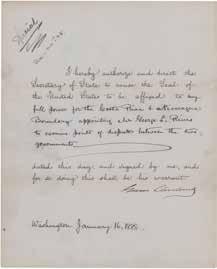 I hereby authorize and direct the
Secretary of State to cause the Seal of
the United States to be affixed to my
full power for the Costa Rica & Nicaragua
Boundary appointing Mr George L. Rives
to examine points of dispute between the two
governments
dated this day and signed by me, and
for so doing this shall be his warrant
Grover Cleveland
Washington January 16, 188